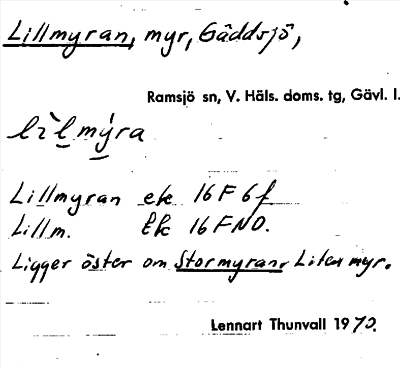 Lillmyran, myr, Gäddsjö,
Ramsjö sn, V. Häls. doms. tg, Gävl. l.
lìl mýra
Lillmyran ek 16 F 6 f
Lillm. Ek 16 F NO.
Ligger öster om Stormyran. Liten myr.
Lennart Thunvall 1970.